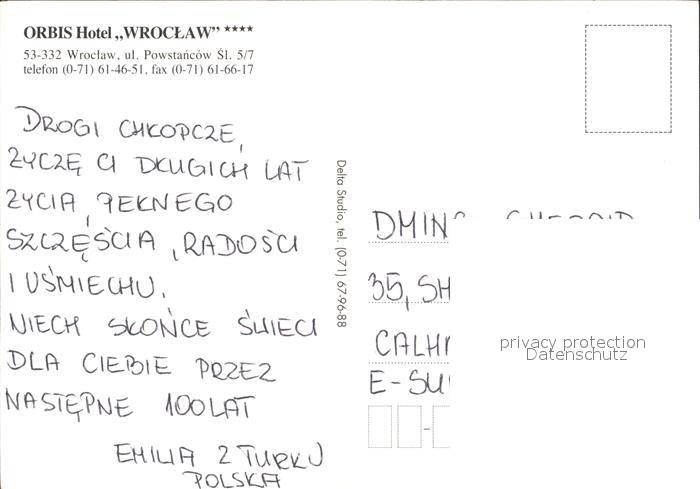 ORBIS Hotel „WROCŁAW” ****
53-332 Wrocław, ul. Powstańców Śl. 5/7
telefon (0-71) 61-46-51, fax (0-71) 61-66-17
DROGI CHŁOPCZE,
ŻYCZĘ CI DŁUGICH LAT
ŻYCIA, PEŁNEGO
SZCZĘŚCIA, RADOŚCI
I UŚMIECHU.
NIECH SŁOŃCE ŚWIECI
DLA CIEBIE PRZEZ
NASTĘPNE 100 LAT
EMILIA Z TURKU
POLSKA
Delta Studio, tel. (0-71) 67-96-88
35, SH
E-SU
privacy protection
Datenschutz